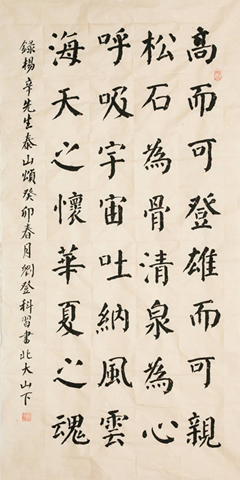 高而可登雄而可親
松石為骨清泉為心
呼吸宇宙吐納風雲
海天之懷華夏之魂
錄楊辛先生泰山頌癸卯春月劉登科習書北大山下